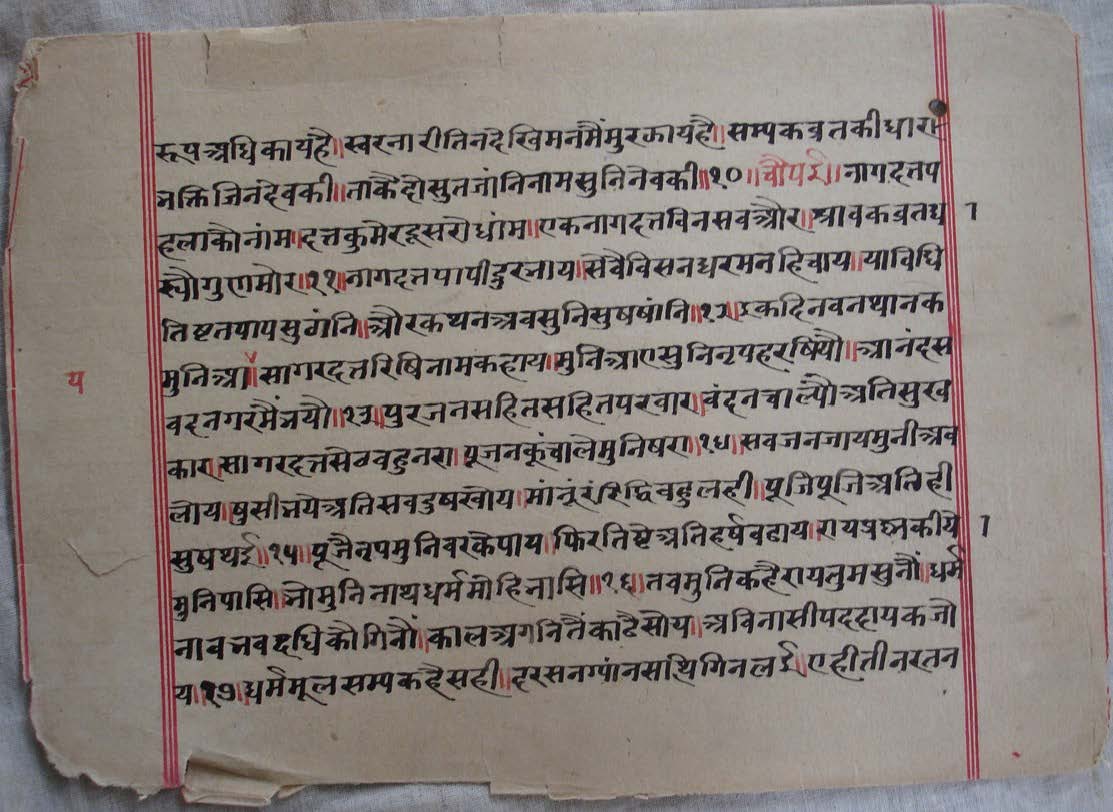 रूपअधिकायहै॥स्वरनारीतिनदेखिमनमैंमुरझायहै॥सम्पकव्रतकीधारा
भक्तिजिनदेवकी॥ताकैदोसुतजांनिनामसुनिनेवकी॥१०॥चौपई॥नागदत्तप
हलाकौनांम॥दत्तकुमेरदूसरोधांम॥एकनागदत्तविनसवऔर॥श्रावकव्रतध
स्चौगुणमोर॥११॥नागदत्तपापीदुरभाय॥सेवैविसनधरमनहिचाय॥याविधि
तिष्टतपायसुगंनि॥औरकथनअवसुनिसुषषांनि॥१२॥इकदिनवनथानक
मुनिआ॥सागरदत्तरिषिनामकहाय॥मुनिआएसुनिनृपहरषियौ॥आनंदस
वरनगरमैंभयौ॥१३॥पुरजनसहितसहितपरवार॥वंदनचाल्यौअतिसुख
कार॥सागरदत्तसेठवहुनरा॥पूजनकूंचालेमुनिषरा॥१४॥सवजनजायमुनीअव
लोय॥षुसीभयेअतिसवदुषखोय॥मांनूंरंरिद्धिवहुलही॥पूजिपूजिअतिही
सुषथई॥१५॥पूजैनृपमुनिवरकैपाय॥फिरतिष्टेअतिहर्षवढाय॥रायप्रष्नकीये
मुनिपासि॥भोमुनिनाथधर्ममोहिभासि॥१६॥तवमुनिकहैरायतुमसुनौं॥धर्म
नावभवदधिकौगिनौं॥कालअगनितैंकाढैसोय॥अविनासीपददायकजो
य॥१७॥धर्ममूलसम्पकहैसही॥दरसनग्यांनसाथिगिनलई॥एहीतीनरतन
य